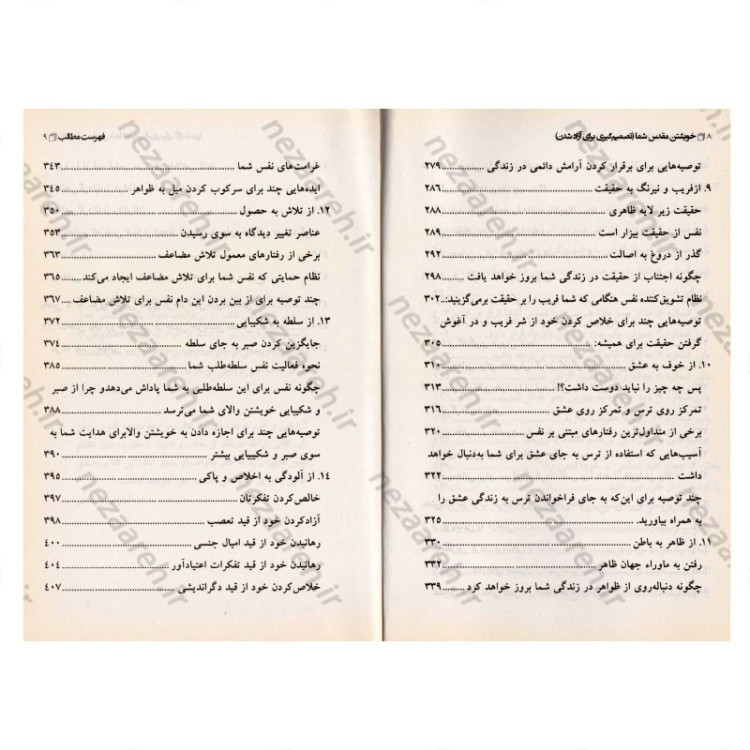 ۸ خویشتن مقدس شما (تصمیم‌گیری برای آزاد شدن)
توصیه‌هایی برای برقرار کردن آرامش دائمی در زندگی ............ ۲۷۹
۹. ازفریب و نیرنگ به حقیقت ............ ۲۸۶
حقیقت زیر لایه ظاهری ............ ۲۸۸
نفس از حقیقت بیزار است ............ ۲۸۹
گذر از دروغ به اصالت ............ ۲۹۲
چگونه اجتناب از حقیقت در زندگی شما بروز خواهد یافت ............ ۲۹۸
نظام تشویق‌کننده نفس هنگامی که شما فریب را بر حقیقت برمی‌گزینید: .. ۳۰۲
توصیه‌هایی چند برای خلاص کردن خود از شر فریب و در آغوش
گرفتن حقیقت برای همیشه: ............ ۳۰۵
۱۰. از خوف به عشق ............ ۳۱۰
پس چه چیز را نباید دوست داشت؟! ............ ۳۱۳
تمرکز روی ترس و تمرکز روی عشق ............ ۳۱۶
برخی از متداول‌ترین رفتارهای مبتنی بر نفس ............ ۳۲۰
آسیب‌هایی که استفاده از ترس به جای عشق برای شما به‌دنبال خواهد
داشت ............ ۳۲۲
چند توصیه برای این‌که به جای فراخواندن ترس به زندگی عشق را
به همراه بیاورید. ............ ۳۲۵
۱۱. از ظاهر به باطن ............ ۳۳۰
رفتن به ماوراء جهان ظاهر ............ ۳۳۲
چگونه دنباله‌روی از ظواهر در زندگی شما بروز خواهد کرد ............ ۳۳۹
فهرست مطالب ۹
غرامت‌های نفس شما ............ ۳۴۳
ایده‌هایی چند برای سرکوب کردن میل به ظواهر ............ ۳۴۵
۱۲. از تلاش به حصول ............ ۳۵۰
عناصر تغییر دیدگاه به سوی رسیدن ............ ۳۵۳
برخی از رفتارهای معمول تلاش مضاعف ............ ۳۶۲
نظام حمایتی که نفس شما برای تلاش مضاعف ایجاد می‌کند ............ ۳۶۵
چند توصیه برای از بین بردن این دام نفس برای تلاش مضاعف ............ ۳۶۷
۱۳. از سلطه به شکیبایی ............ ۳۷۲
جایگزین کردن صبر به جای سلطه ............ ۳۷۴
نحوه فعالیت نفس سلطه‌طلب شما ............ ۳۸۵
چگونه نفس برای این سلطه‌طلبی به شما پاداش می‌دهدو چرا از صبر
و شکیبایی خویشتن والای شما می‌ترسد ............ ۳۸۸
توصیه‌هایی چند برای اجازه دادن به خویشتن والابرای هدایت شما به
سوی صبر و شکیبیایی بیشتر ............ ۳۹۰
۱۴. از آلودگی به اخلاص و پاکی ............ ۳۹۵
خالص‌کردن تفکرتان ............ ۳۹۷
آزادکردن خود از قید تعصب ............ ۳۹۸
رهانیدن خود از قید امیال جنسی ............ ۴۰۰
رهانیدن خود از قید تفکرات اعتیادآور ............ ۴۰۴
خلاص‌کردن خود از قید دگراندیشی ............ ۴۰۷
nezaareh.ir